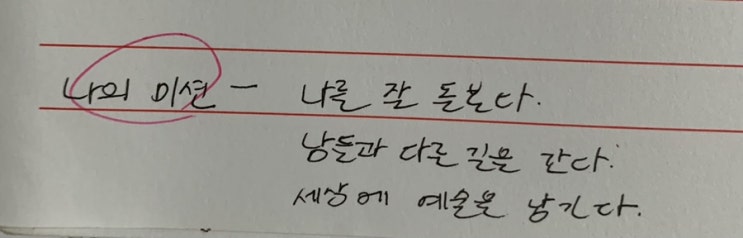 나의 미션 - 나를 잘 돌본다.
남들과 다른 길을 간다.
세상에 예술을 남긴다.